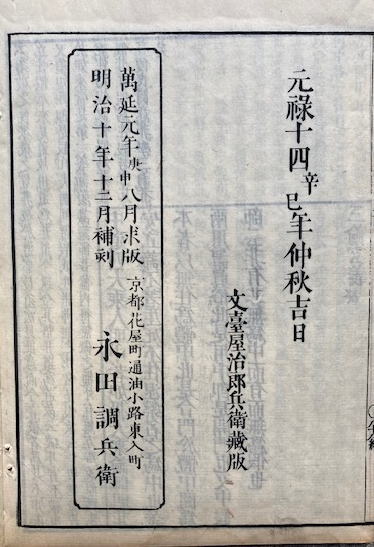 元祿十四辛巳年仲秋吉日
文臺屋治郎兵衛藏版
萬延元年庚申八月求版
明治十年十二月補刻
京都花屋町通油小路東入町
永田調兵衛